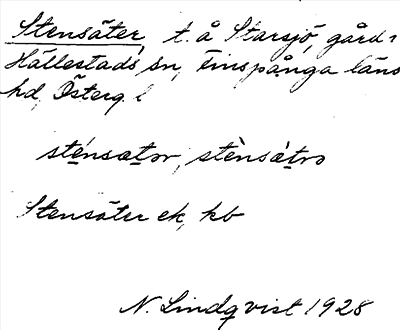 Stensäter, t. å Starsjö, gård i
Hällestads sn, Finspånga läns
hd, Österg. l
sténsætər, stènsǽtrə
Stensäter ek, kb
N. Lindqvist 1928